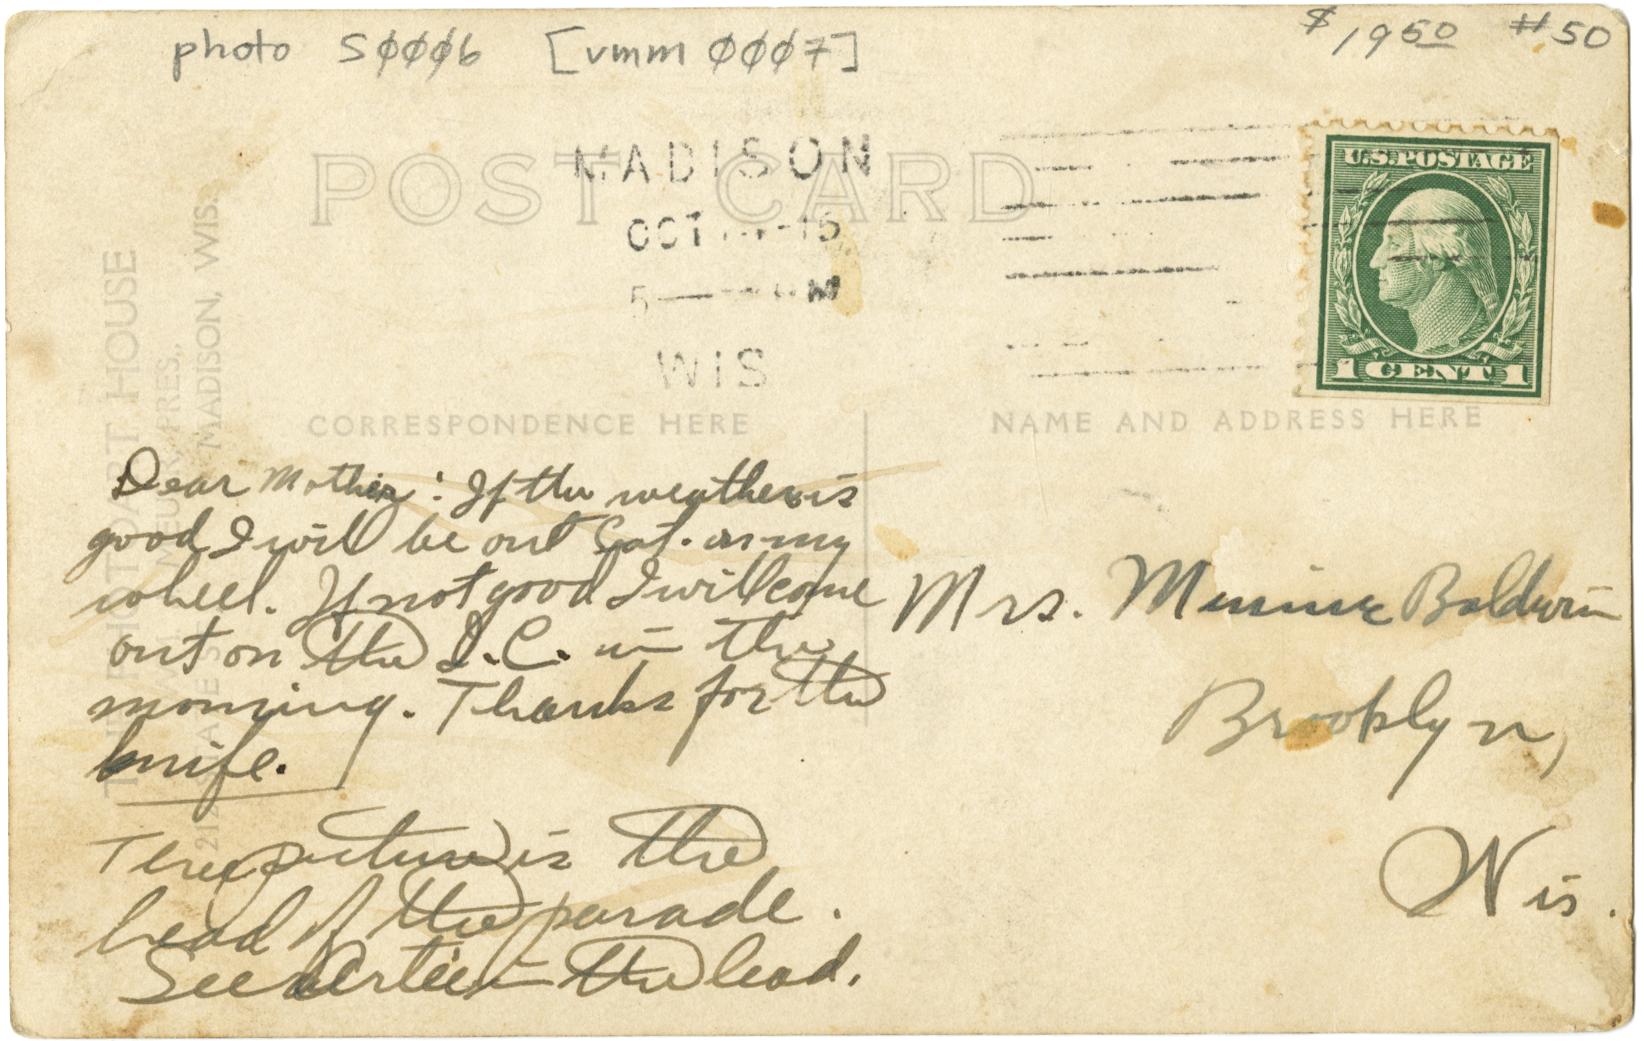 photo S0006 [vmm 0007]
$1950 #50
POST CARD
MADISON
OCT 15
5 M
WIS
U.S. POSTAGE
1 CENT 1
THE PHOTOART HOUSE
PRES.,
MADISON, WIS.
CORRESPONDENCE HERE
NAME AND ADDRESS HERE
Dear Mother: If the weather is
good I will be out Sat. on my
wheel. If not good I will come
out on the I.C. in the
morning. Thanks for the
knife.
The picture is the
head of the parade.
See Artie in the lead.
Mrs. Minnie Baldwin
Brooklyn,
Wis.